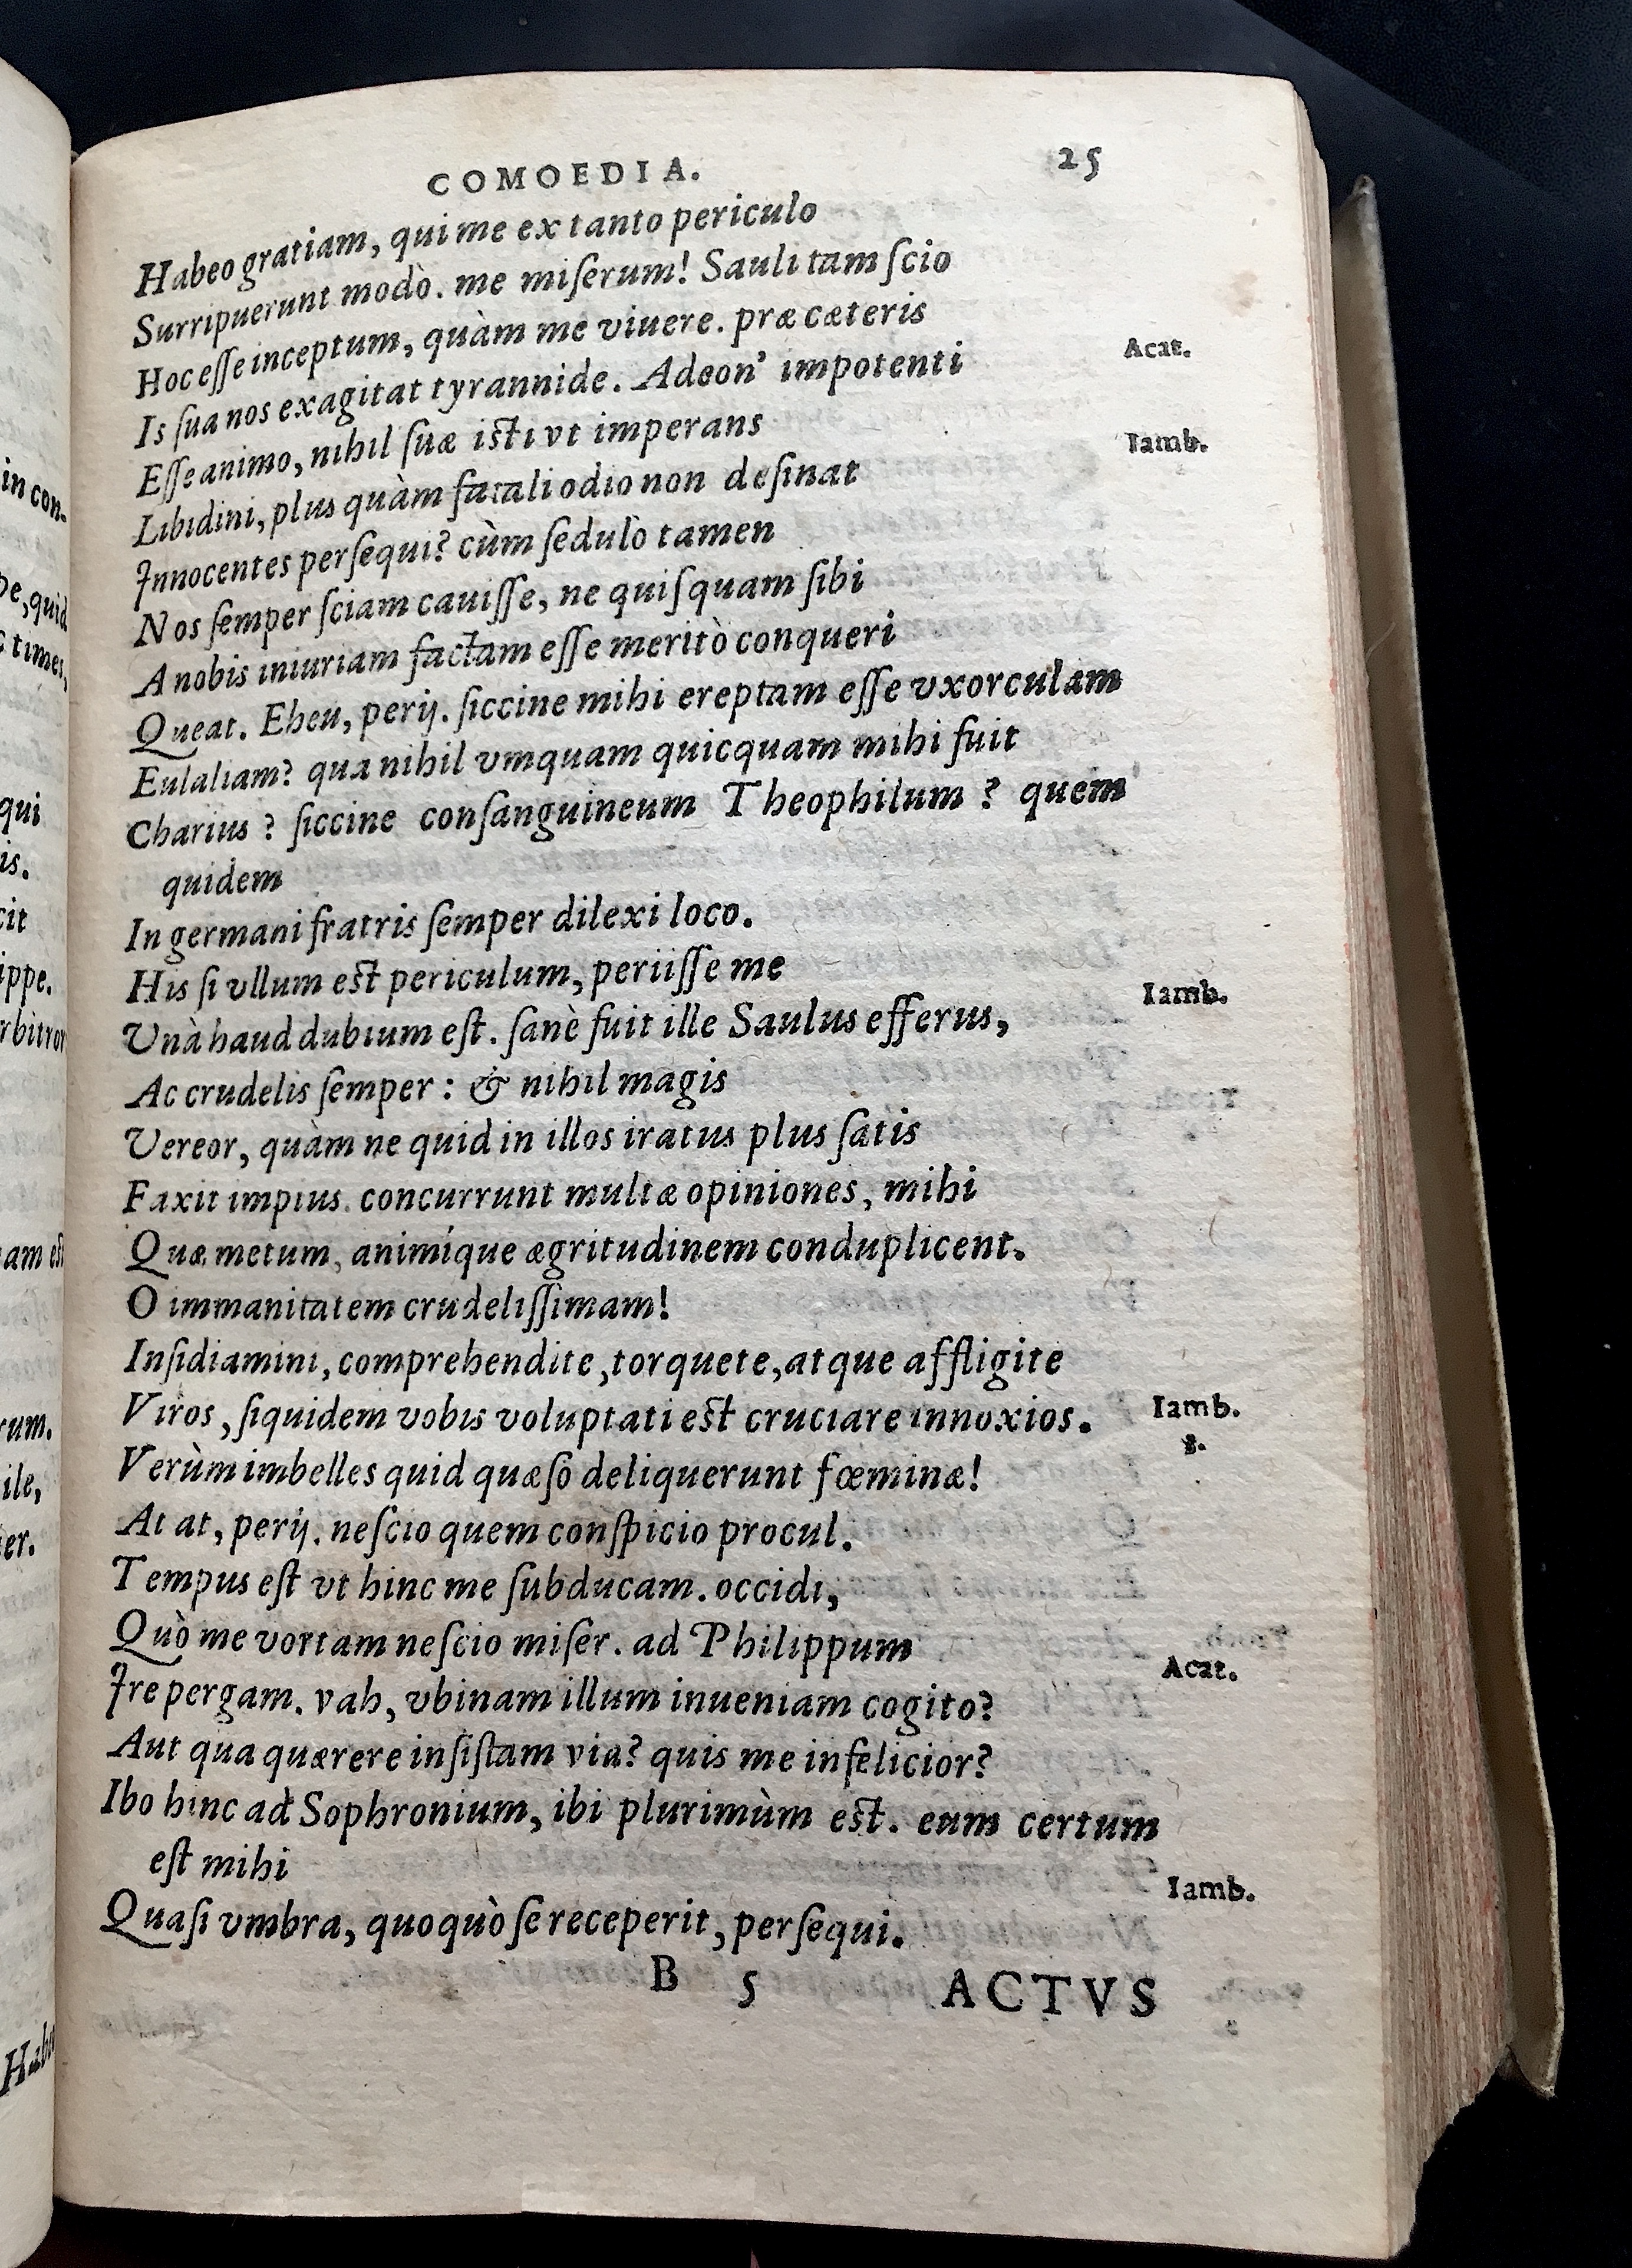 COMOEDIA. 25
Habeo gratiam, qui me ex tanto periculo
Surripuerunt modò. me miſerum! Sauli tam ſcio
Hoc eſſe inceptum, quàm me viuere. præ cæteris
Acat.
Is ſua nos exagitat tyrannide. Adeon' impotenti
Eſſe animo, nihil ſuæ iſti vt imperans
Iamb.
Libidini, plus quàm fatali odio non deſinat
Innocentes perſequi? cùm ſedulò tamen
Nos ſemper ſciam cauiſſe, ne quiſquam ſibi
A nobis iniuriam factam eſſe meritò conqueri
Queat. Eheu, perij. ſiccine mihi ereptam eſſe vxorculam
Eulaliam? qua nihil vmquam quicquam mihi fuit
Charius? ſiccine conſanguineum Theophilum? quem
quidem
In germani fratris ſemper dilexi loco.
His ſi vllum eſt periculum, periiſſe me
Iamb.
Vnà haud dubium eſt. ſanè fuit ille Saulus efferus,
Ac crudelis ſemper: & nihil magis
Vereor, quàm ne quid in illos iratus plus ſatis
Faxit impius. concurrunt multæ opiniones, mihi
Quæ metum, animíque ægritudinem conduplicent.
O immanitatem crudeliſſimam!
Inſidiamini, comprehendite, torquete, atque affligite
Viros, ſiquidem vobis voluptati eſt cruciare innoxios.
Iamb.
8.
Verùm imbelles quid quæſo deliquerunt fœminæ!
At at, perij. neſcio quem conſpicio procul.
Tempus eſt vt hinc me ſubducam. occidi,
Quò me vortam neſcio miſer. ad Philippum
Acat.
Ire pergam. vah, vbinam illum inueniam cogito?
Aut qua quærere inſiſtam via? quis me infelicior?
Ibo hinc ad Sophronium, ibi plurimùm eſt. eum certum
eſt mihi
Iamb.
Quaſi vmbra, quoquò ſe receperit, perſequi.
B 5 ACTVS
in con-
quid
times,
qui
is.
cit
ippe.
rbitror
am eſt
rum.
ile,
er.